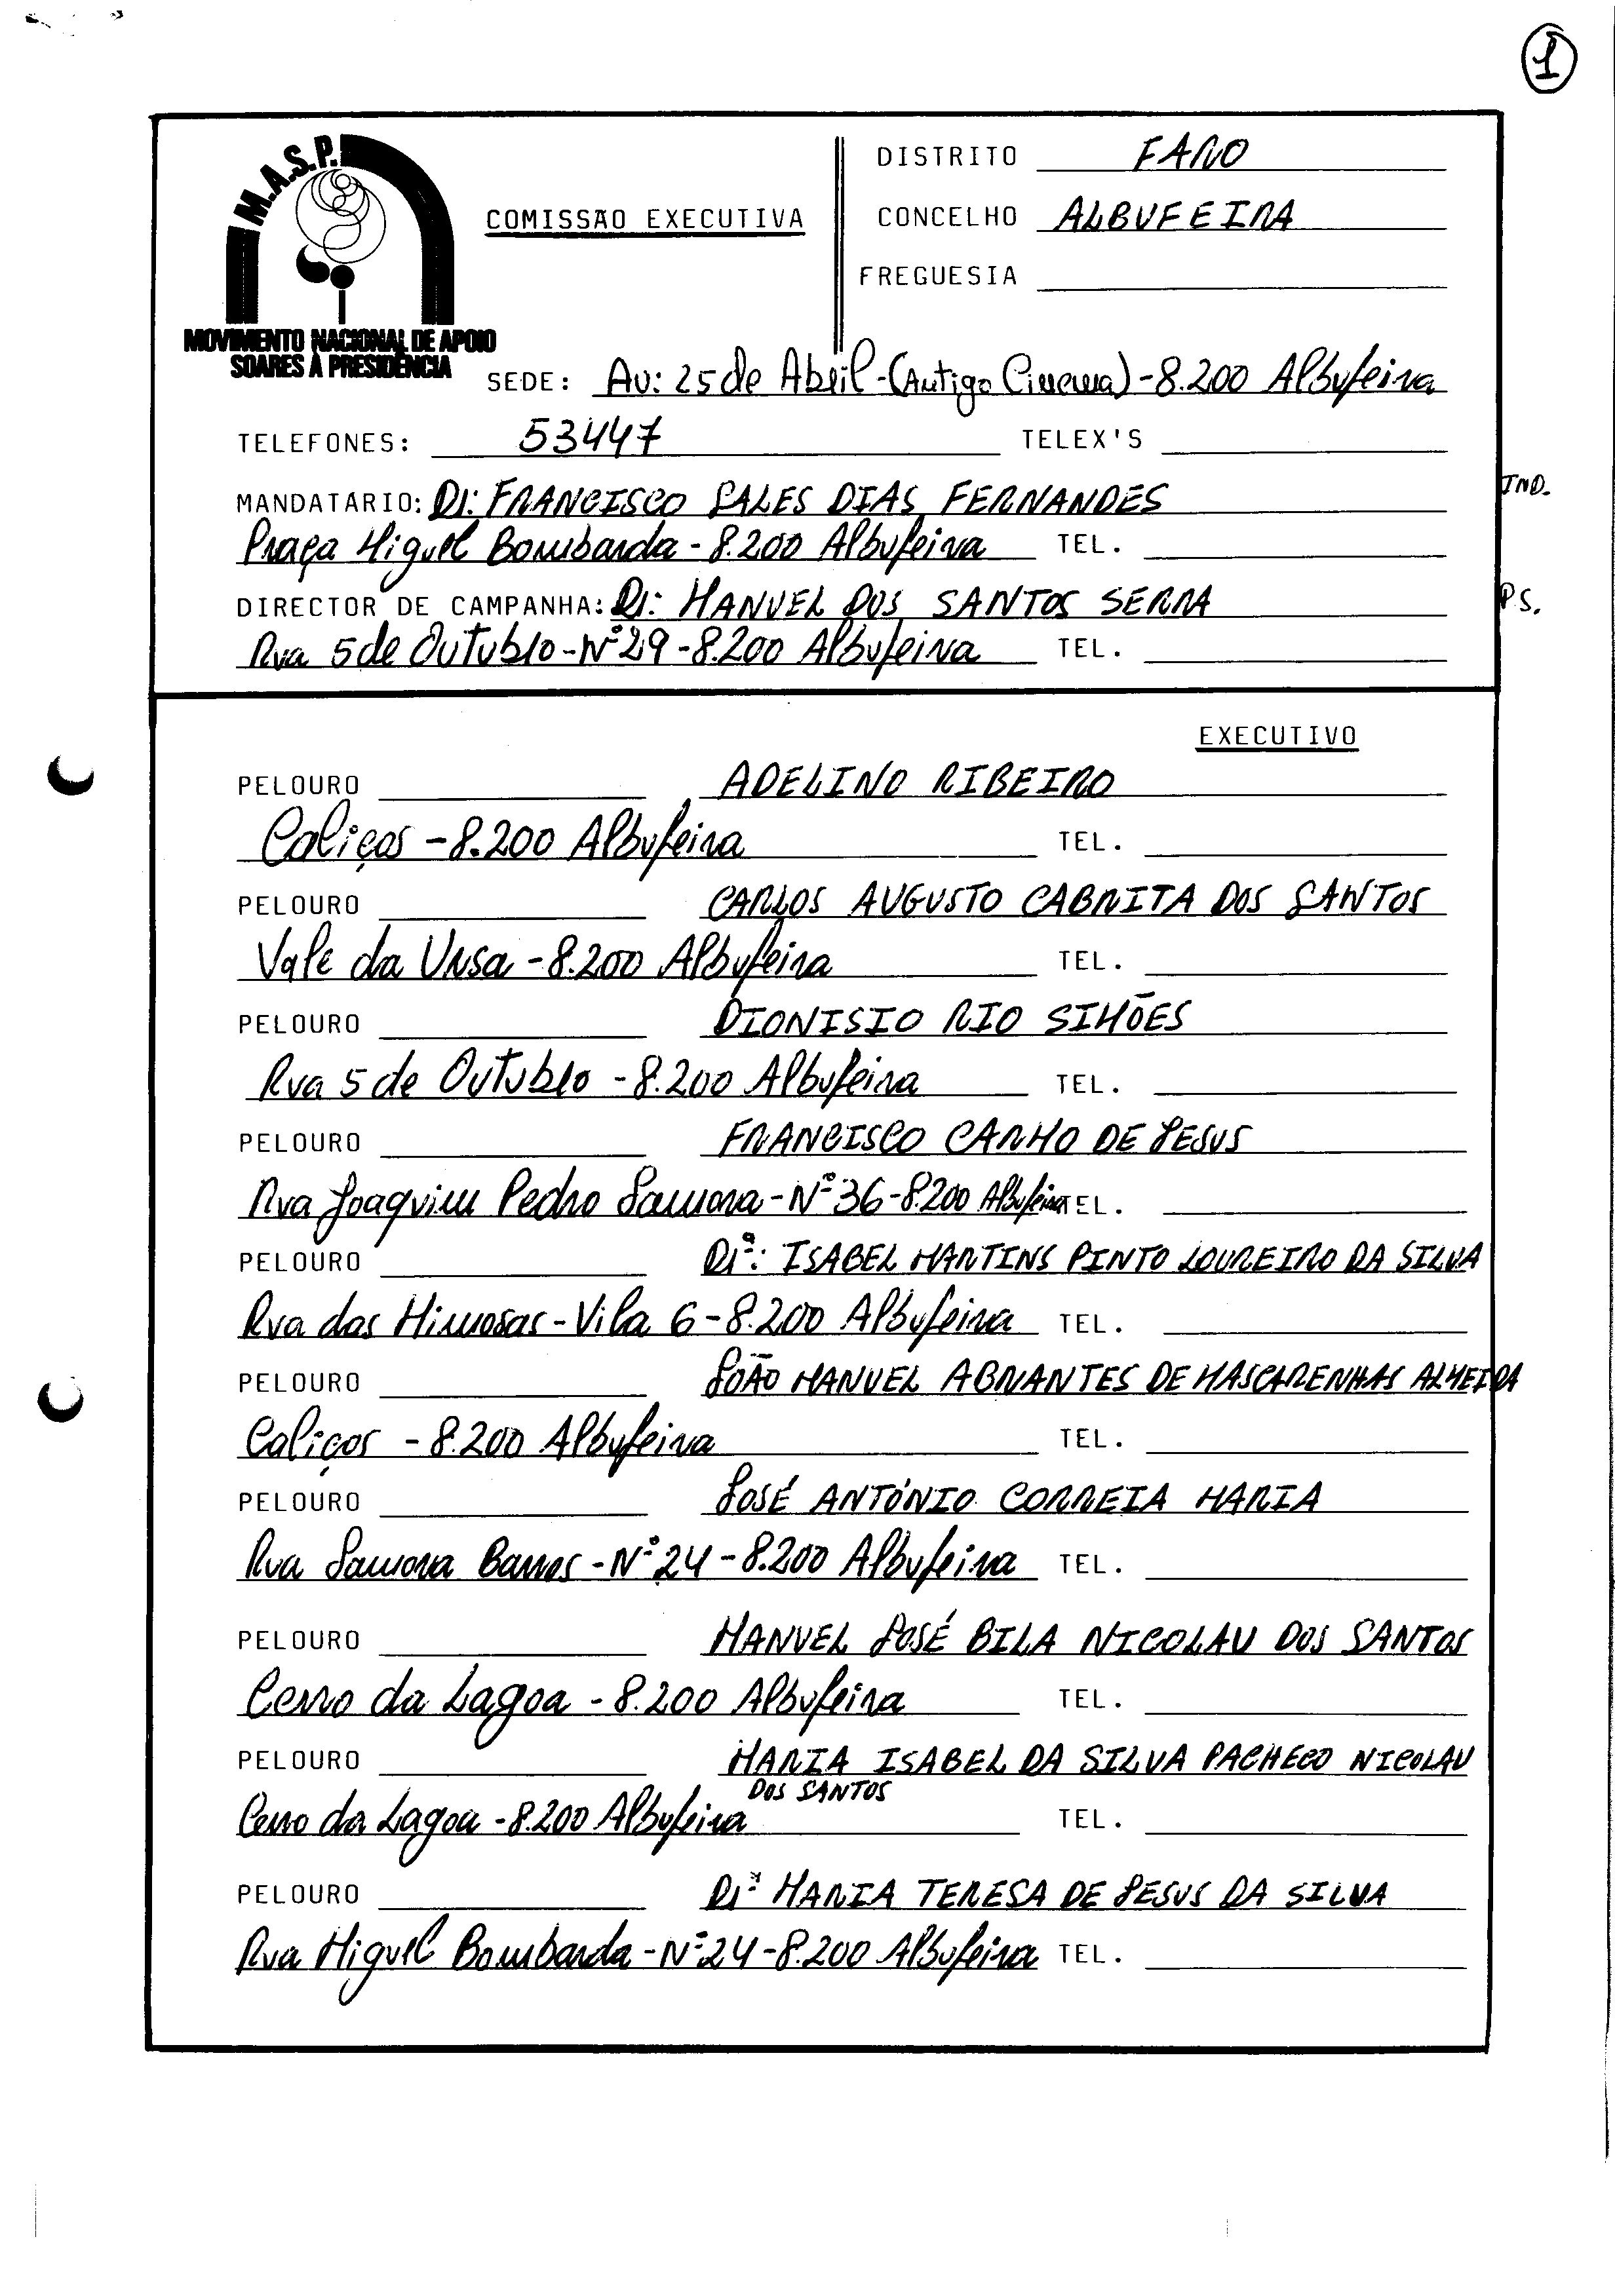 1
M.A.S.P.
MOVIMENTO NACIONAL DE APOIO
SOARES À PRESIDÊNCIA
COMISSÃO EXECUTIVA
DISTRITO FARO
CONCELHO ALBUFEIRA
FREGUESIA
SEDE: Av: 25 de Abril - (Antigo Cinema) - 8.200 Albufeira
TELEFONES: 53447 TELEX'S
MANDATARIO: Dr: FRANCISCO SALES DIAS FERNANDES IND.
Praça Miguel Bombarda - 8.200 Albufeira TEL.
DIRECTOR DE CAMPANHA: Dr: MANUEL DOS SANTOS SERRA P.S.
Rua 5 de Outubro - Nº 29 - 8.200 Albufeira TEL.
EXECUTIVO
PELOURO ADELINO RIBEIRO
Caliços - 8.200 Albufeira TEL.
PELOURO CARLOS AUGUSTO CABRITA DOS SANTOS
Vale da Ursa - 8.200 Albufeira TEL.
PELOURO DIONISIO RIO SIMÕES
Rua 5 de Outubro - 8.200 Albufeira TEL.
PELOURO FRANCISCO CARMO DE JESUS
Rua Joaquim Pedro Samora - Nº 36 - 8.200 Albufeira TEL.
PELOURO Drª: ISABEL MARTINS PINTO LOUREIRO DA SILVA
Rua das Mimosas - Vila 6 - 8.200 Albufeira TEL.
PELOURO JOÃO MANUEL ABRANTES DE MASCARENHAS ALMEIDA
Caliços - 8.200 Albufeira TEL.
PELOURO JOSÉ ANTÓNIO CORREIA MARIA
Rua Samora Barros - Nº 24 - 8.200 Albufeira TEL.
PELOURO MANUEL JOSÉ BILA NICOLAU DOS SANTOS
Cerro da Lagoa - 8.200 Albufeira TEL.
PELOURO MARIA ISABEL DA SILVA PACHECO NICOLAU
DOS SANTOS
Cerro da Lagoa - 8.200 Albufeira TEL.
PELOURO Drª MARIA TERESA DE JESUS DA SILVA
Rua Miguel Bombarda - Nº 24 - 8.200 Albufeira TEL.